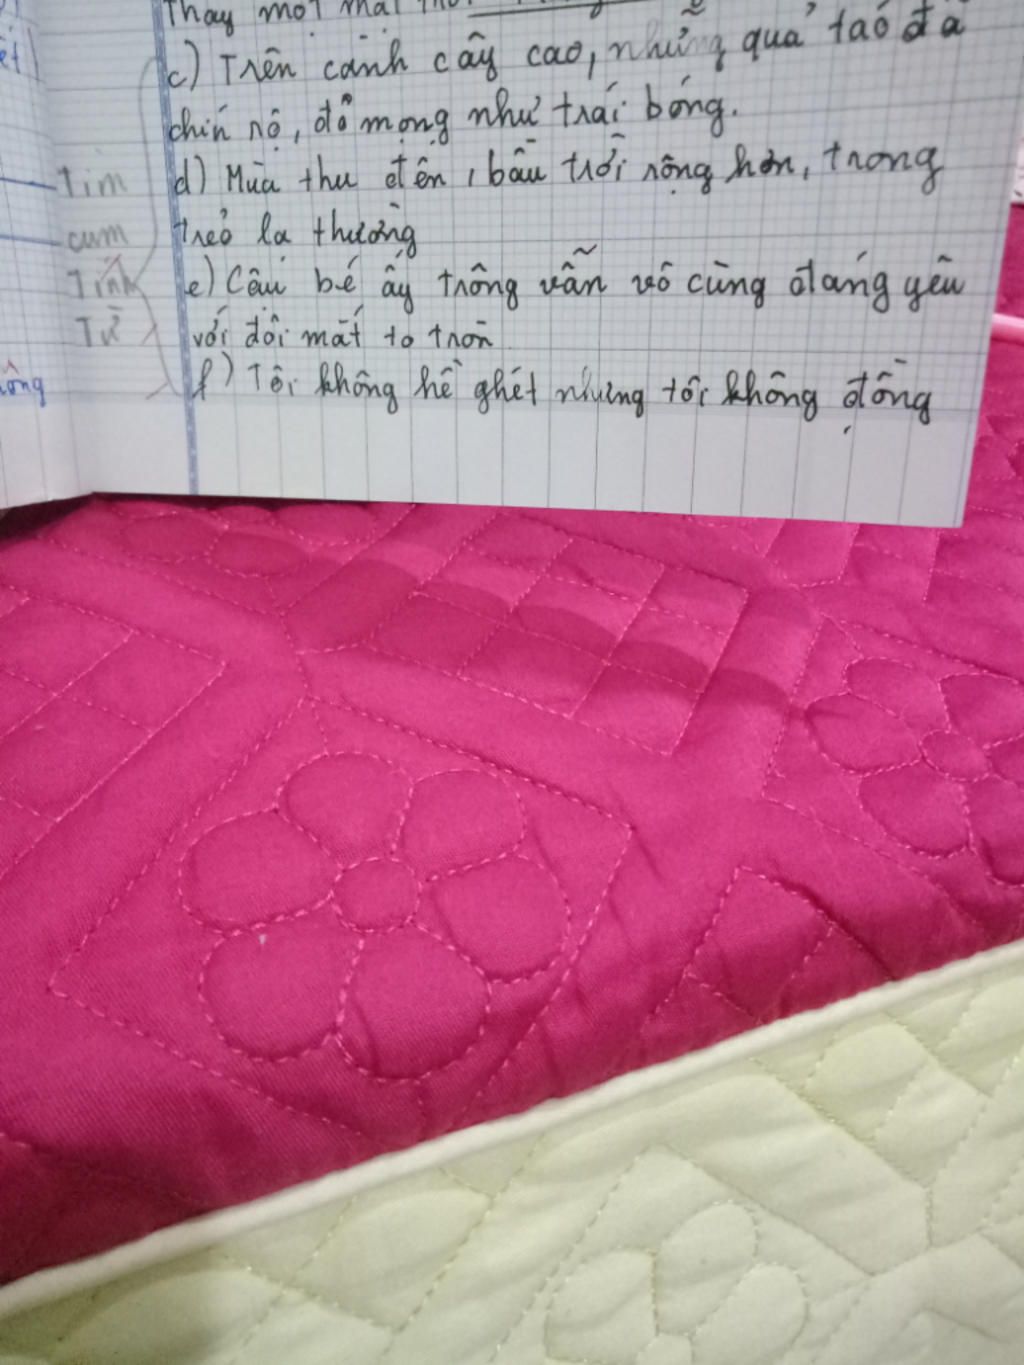 Thay mọi mai
c) Trên cành cây cao, những quả táo đã
chín nộ, đỏ mọng như trái bóng.
d) Mùa thu đến, bầu trời rộng hơn, trong
trẻo lạ thường
e) Cậu bé ấy trông vẫn vô cùng đáng yêu
với đôi mắt to tròn
f) Tôi không hề ghét nhưng tôi không đồng
Tìm
cụm
Tính
Từ